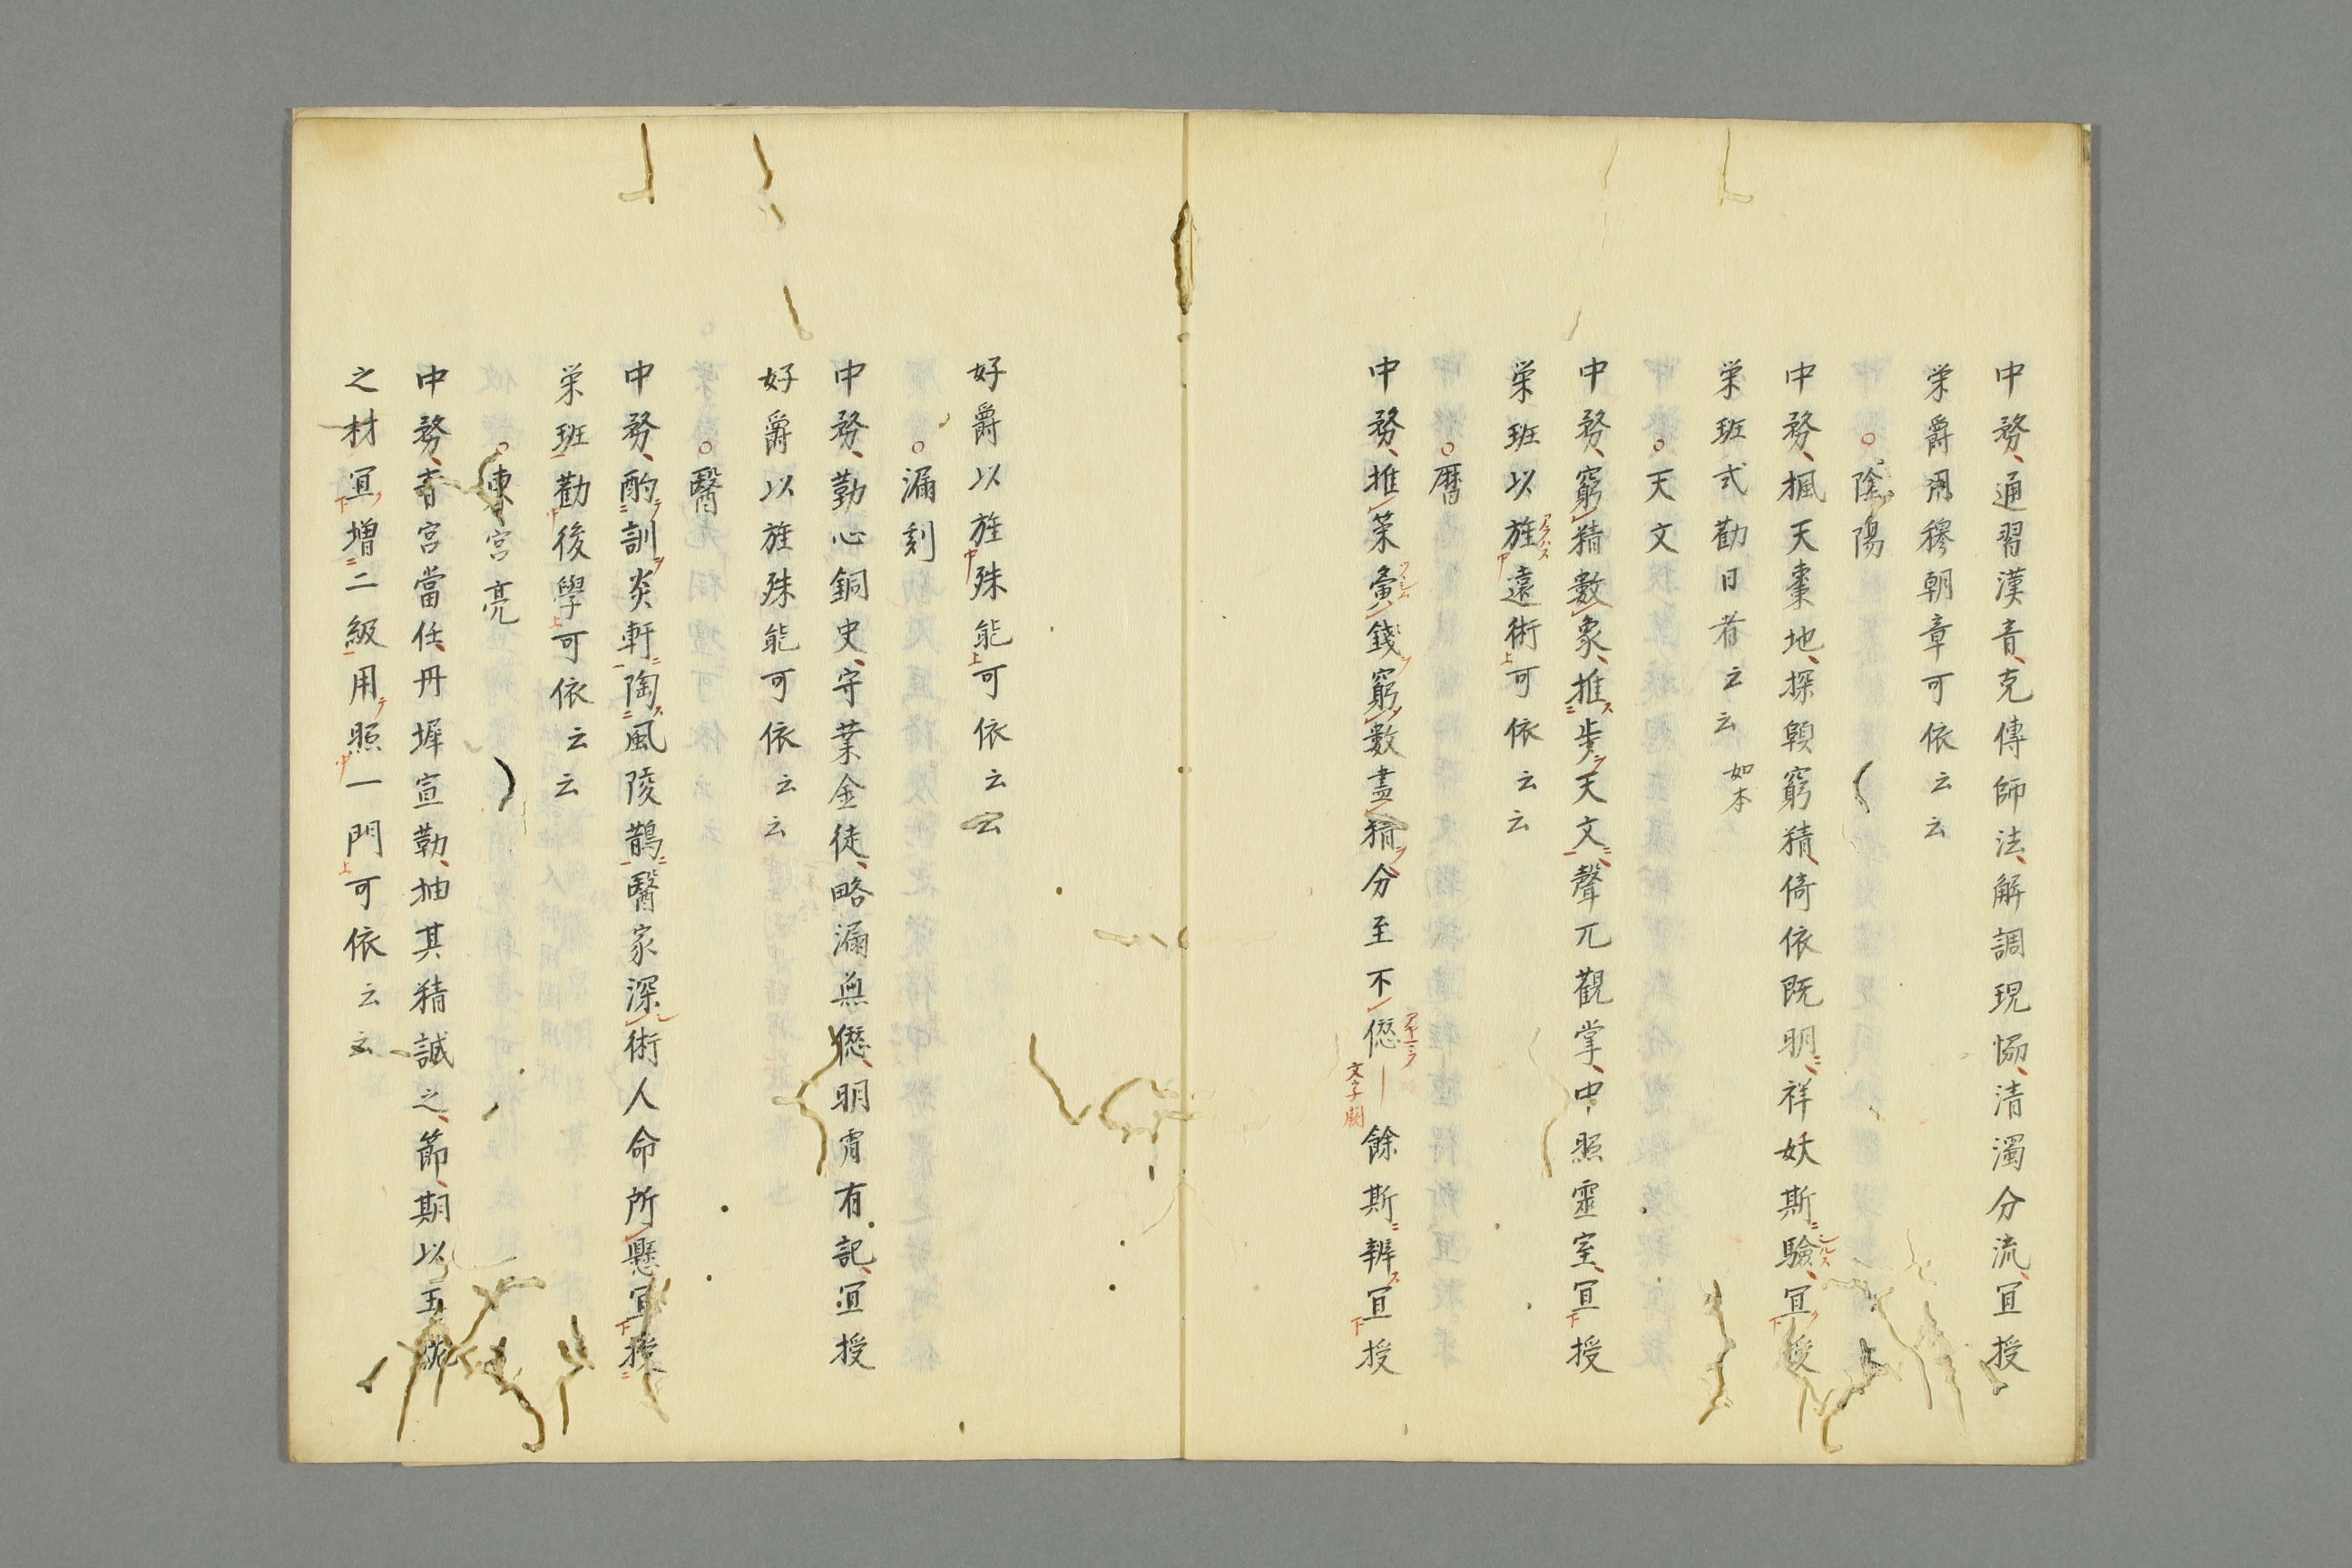 中務、通習漢音、克傳師法、解調現惱、清濁分流、冝授
栄爵用穆朝章可依云云
○陰陽
中務、楓天棗地、探賾窮精、倚依既明、祥妖斯驗、冝授
栄班式勸日者云云 如本
○天文
中務、窮精數象、推歩天文、聲兀觀掌、中照霊室、冝授
栄班以旌遠術可依云云
○暦
中務、推策 錢窮數盡精分至不𠍴 文字闕 餘斯辨冝授
好爵以旌殊能可依云云
○漏刻
中務、勤心銅史、守業金徒、略漏無𠍴、明宵有記、冝授
好爵以旌殊能可依云云
○醫
中務、酌訓炎軒陶風陵鵲醫家深術人命所懸冝授
栄班勸後學可依云云
○東宮亮
中務、青宮當任、丹墀宣勤、抽其精誠之、節、期以玉
之材冝増二級用照一門可依云云